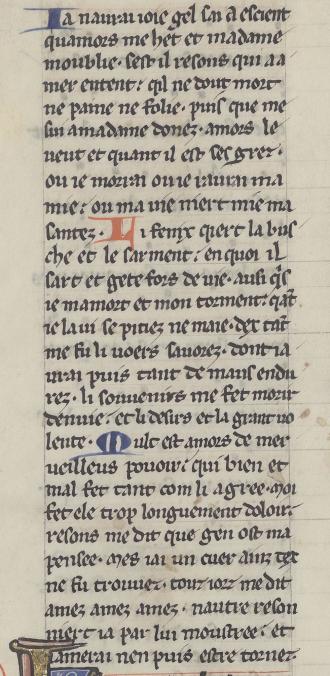 Ia naurai ioie gel sai a escient
quamors me het et madame
moublie. sest il resons qui a a
mer entent. qil ne dout mort
ne paine ne folie. puis que me
sui amadame donez. amors le
ueut et quant il est ses grez.
ou ie morrai ou ie raurai ma
mie. ou ma uie niert mie ma
santez. Li fenix qiert la bus
che et le sarment. en quoi il
sart et gete fors de uie. ausi qis
ie ma mort et mon torment. qāt
ie la ui se pitiez ne maie. dex tāt
me fu li uoers sauorez. dont ia
urai puis tant de maus endu
rez. li souuenirs me fet morir
denuie. et li desirs et la grant uo
lente. Mult est amors de mer
ueilleus pouoir. qui bien et
mal fet tant com li agree. moi
fet ele trop longuement doloir.
resons me dit que gen ost ma
pensee. mes iai un cuer ainz tex
ne fu trouuez. touz iorz me dit
amez amez amez. nautre reson
niert ia par lui moustree. et
iamerai nen puis estre tornez.